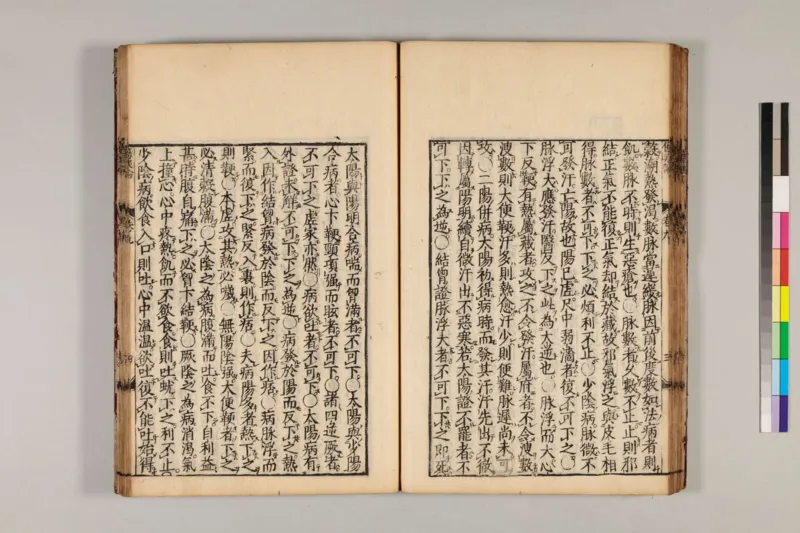 數潮熱發渴數脉當遲緩脉因前後度數如法病者則
飢數脉不時則生惡瘡也〇脉數者久數不止止則邪
結正氣不能復正氣却結於藏故邪氣浮之與皮毛相
得脉數者不可下下之必煩利不止〇少陰病脉微不
可發汗亡陽故也陽已虛尺中弱濇者復不可下之〇
脉浮大應發汗醫反下之此為大逆也〇脉浮而大心
下反鞕有熱屬藏者攻之不令發汗屬府者不令溲數
溲數則大便鞕汗多則熱愈汗少則便難脉遲尚未可
攻〇二陽併病太陽初得病時而發其汗汗先出不徹
因轉屬陽明續自微汗出不惡寒若太陽證不罷者不
可下下之為逆〇結胷證脉浮大者不可下下之即死
太陽與陽明合病喘而胷滿者不可下〇太陽與少陽
合病者心下鞕頸項强而眩者不可下〇諸四逆厥者
不可下之虛家亦然〇病欲吐者不可下〇太陽病有
外證未解不可下下之為逆〇病發於陽而反下之熱
入因作結胷病發於陰而反下之因作痞〇病脉浮而
緊而復下之緊反入裏則作痞〇夫病陽多者熱下之
則鞕〇本虛攻其熱必噦〇無陽陰强大便鞕者下之
必清穀腹滿〇太陰之為病腹滿而吐食不下自利益
甚時腹自痛下之必胷下結鞕〇厥陰之為病消渴氣
上撞心心中疼熱飢而不欲食食則吐蚘下之利不止
少陰病飲食入口則吐心中温温欲吐復不能吐始得